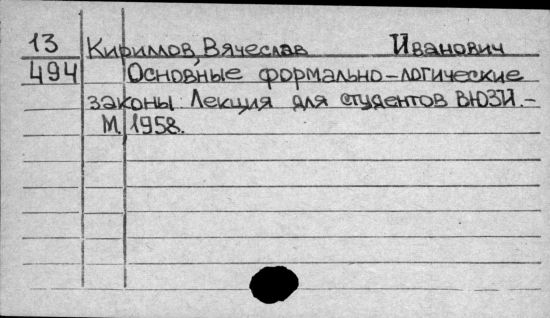 13 Кириллов, Вячеслав Иванович
494 Основные формально-логические
законы. Лекция для студентов ВЮЗИ.-
М, 1958.